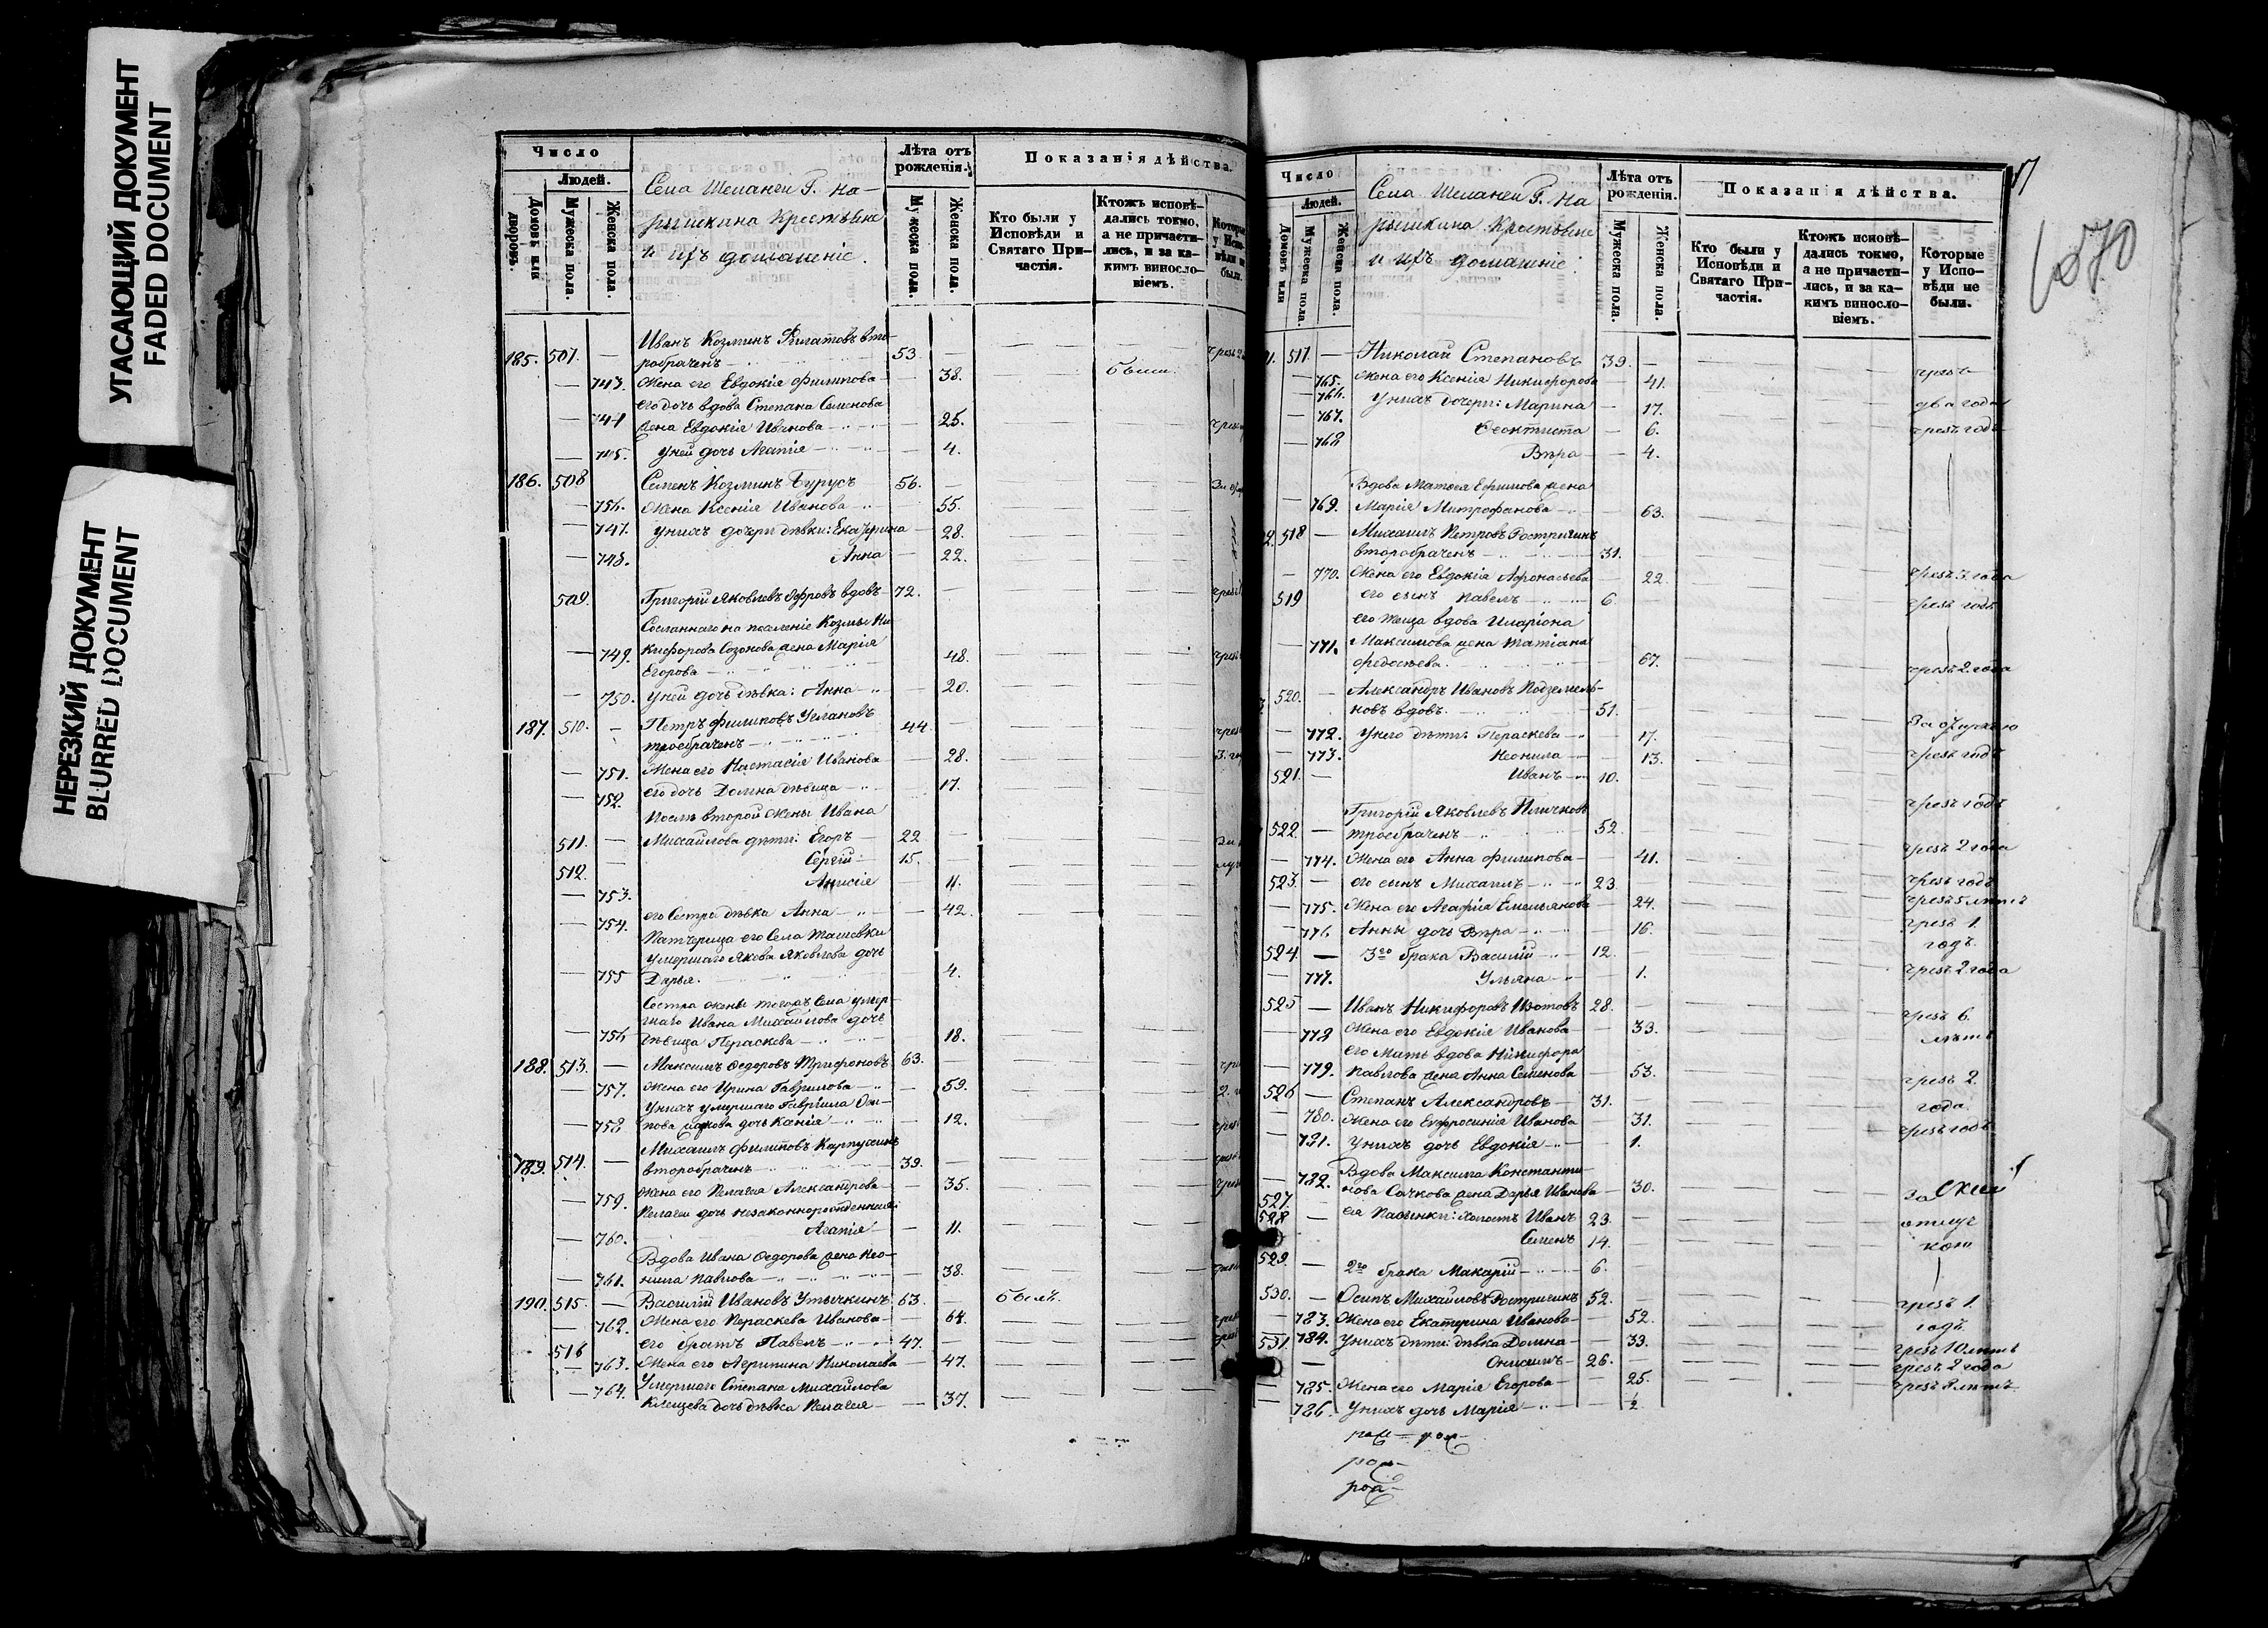 УГАСАЮЩИЙ ДОКУМЕНТ
FADED DOCUMENT
НЕРЕЗКИЙ ДОКУМЕНТ
BLURRED DOCUMENT
Число
Людей.
Домовъ или дворовъ.
Мужеска пола.
Женска пола.
Села Шеланги Г. На-
рышкина Крестьяне
и ихъ домашніе.
Лѣта отъ рожденія.
Мужеска пола.
Женска пола.
Показанія дѣйства.
Кто были у Исповѣди и Святаго При-частія.
Ктожъ исповѣ-дались токмо, а не причасти-лись, и за ка-кимъ винословіемъ.
185. 507. — Иванъ Козминъ вто-
робраченъ 53.
743. Жена его Евдокія Филипова 38.
его дочь вдова Степана Семенова
жена Евдокія Иванова 25.
745. у ней дочь Агапія 4.
186. 508 Семенъ Козминъ Бурусъ 56.
756. Жена Ксенія Иванова 55.
747. у нихъ дочери дѣвки: Екатерина 28.
748. Анна 22.
509. Григорій Яковлевъ вдовъ 72.
Сосланнаго на поселеніе Козмы Ни-
749. кифорова Созонова жена Марія
Егорова 48.
750. у ней дочь дѣвка: Анна 20.
187. 510. — Петръ Филиповъ
троебраченъ 44.
751. Жена его Настасія Иванова 28.
752. его дочь Домна дѣвица 17.
После второй жены Ивана
511. — Михайлова дѣти: Егоръ 22
512. Сергій 15.
753. Анисія 4.
754. его Сестра дѣвка Анна 42.
Патчерица его Села Ташевки
умершаго Якова Яковлева дочь
755 Дарья. 4.
Сестра жены тогожъ Села умер-
шаго Ивана Михайлова дочь
756 дѣвица Пераскева 18.
188. 513. — Максимъ Федоровъ Трифоновъ 63.
757. Жена его Ирина Гаврилова 59.
у нихъ умершаго Гавріила Оси-
758 пова дочь 12.
Михаилъ Филиповъ Карпухинъ
189. 514. — второбраченъ 39.
759. Жена его Пелагея Александрова 35.
Пелагеи дочь незаконнорожденная:
760. Агапія 11.
Вдова Ивана Федорова жена Нео-
761. нила Павлова 38.
190. 515. — Василій Ивановъ Утычкинъ 63. былъ.
762. Жена его Пераскева Иванова 64.
516 его братъ Павелъ 47.
763. Жена его Агрипина Николаева 47.
764. Умершаго Степана Михайлова
Клещева дочь дѣвка Пелагея 37.
1870
Число
Людей.
Домовъ или
Мужеска пола.
Женска пола.
Села Шеланги Г. На
рышкина Крестьяне
и ихъ домашніе.
Лѣта отъ рожденія.
Мужеска пола.
Женска пола.
Показанія дѣйства.
Кто были у Исповѣди и Святаго При-частія.
Ктожъ исповѣ-дались токмо, а не причасти-лись, и за ка-кимъ винословіемъ.
Которые у Испо-вѣди не были.
517 — Николай Степановъ 39. — чрезъ
765. Жена его Ксенія Никифорова 41. два года
766. у нихъ дочери: Марина 17. чрезъ годъ
767. Феоктиста 6.
768 Вѣра 4.
Вдова Матвея Ефимова жена
769. Марія Митрофанова 63.
518 — Михаилъ Петровъ Растригинъ
второбраченъ 31.
770. Жена его Евдокія Афонасьева 22. чрезъ 3. года
519 его сынъ Павелъ 6. чрезъ годъ
его теща вдова Иларіона
771. Максимова жена Татіана
Федосѣева 67. чрезъ 2. года
520. — Александръ Ивановъ Подземель-
новъ вдовъ. 51.
772. у него дѣти: Пераскева 17.
773. Неонила 13. чрезъ годъ
521. — Иванъ 10.
чрезъ годъ
Григорій Яковлевъ Пличковъ
522. — троебраченъ 52. чрезъ 2 года
774. Жена его Анна Филипова 41.
523. — его сынъ Михаилъ 23 чрезъ годъ
775. Жена его Агафія Емельянова 24. чрезъ 5 лѣтъ
776 Анны дочь Вѣра 16. чрезъ 1. годъ.
524. — 3го брака Василій 12.
777. Ульяна 1. чрезъ 2 года
525 — Иванъ Никифоровъ Изотовъ 28. чрезъ 6. лѣтъ
778 Жена его Евдокія Иванова 33.
его Мать вдова Никифора
779. Павлова жена Анна Семенова 53. чрезъ 2. года
526 — Степанъ Александровъ 31.
780. Жена его Евфросинія Иванова 31. чрезъ годъ
781. у нихъ дочь Евдокія 1.
782. Вдова Максима Константи-
нова Сачкова жена Дарья Иванова 30.
527.
528 — ея Пасынки: холостъ Иванъ 23.
Семенъ 14.
529. 2го брака Макарій 6.
530. — Осипъ Михайловъ Растригинъ 52. чрезъ 1. годъ
783. Жена его Екатерина Иванова 52.
531. 784. у нихъ дѣти: дѣвка Домна 33. чрезъ 10 лѣтъ
Онисимъ 26. чрезъ 2 года
785. Жена его Марія Егорова 25. чрезъ 8 лѣтъ
786. у нихъ дочь Марія ½